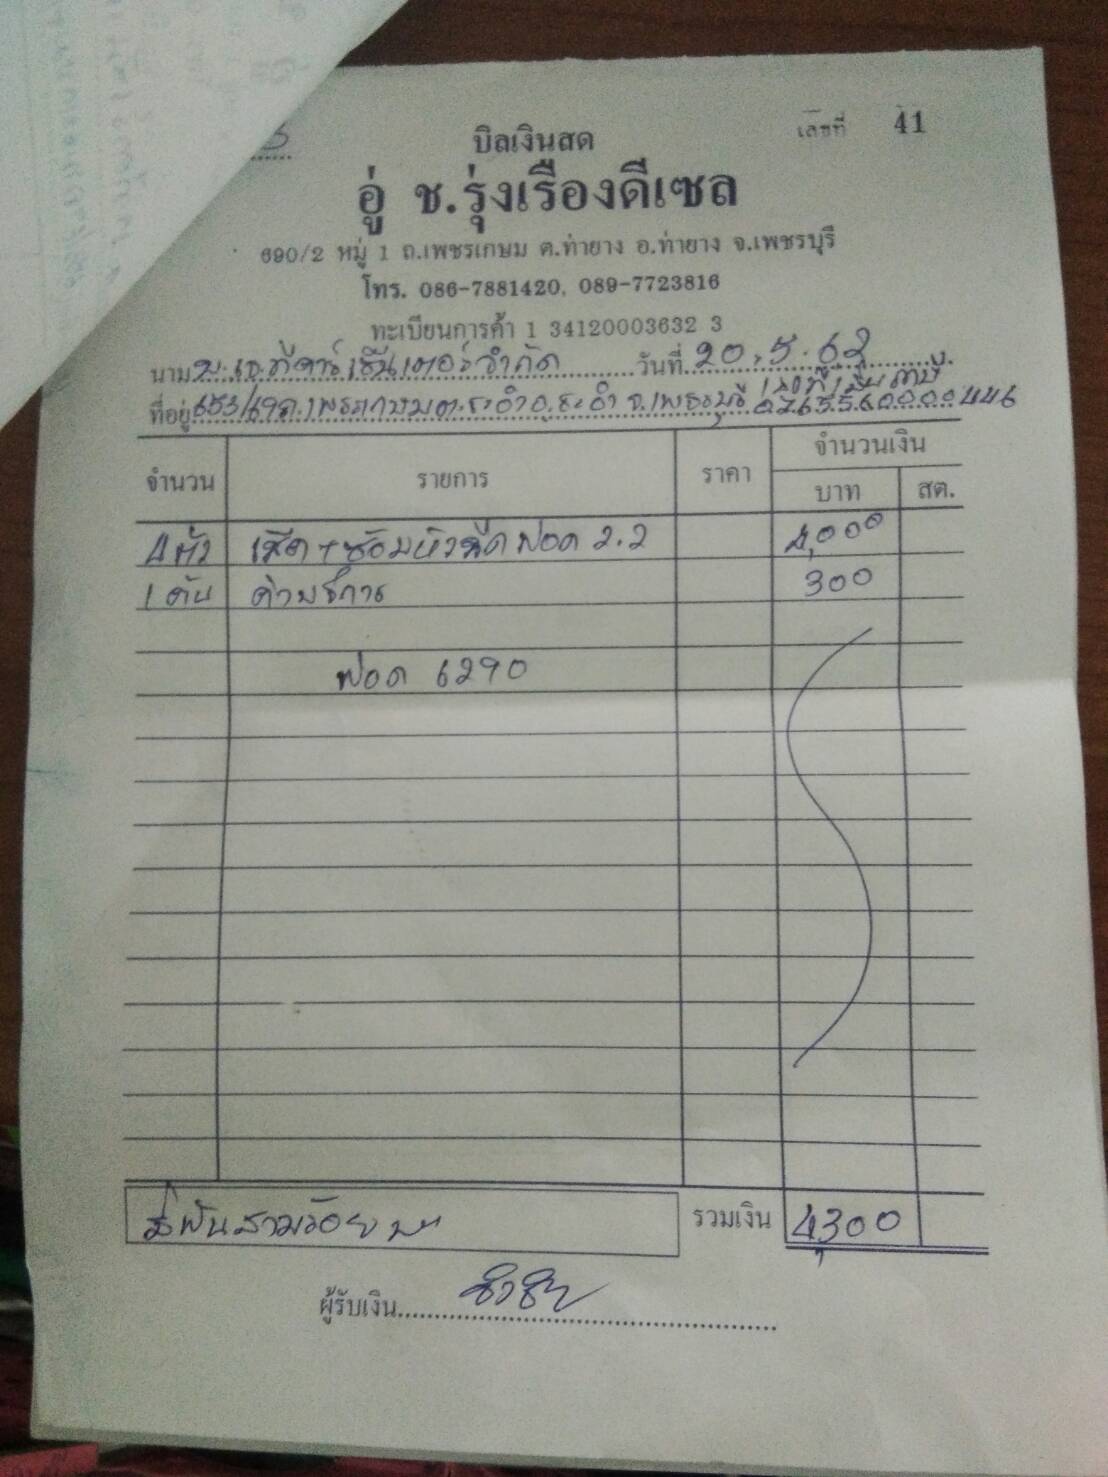 บิลเงินสด
เลขที่ 41
อู่ ช.รุ่งเรืองดีเซล
690/2 หมู่ 1 ถ.เพชรเกษม ต.ท่ายาง อ.ท่ายาง จ.เพชรบุรี
โทร. 086-7881420, 089-7723816
ทะเบียนการค้า 1 34120003632 3
นาม บ. เจ.ที คาร์เซ็นเตอร์ จำกัด วันที่ 20.5.62
ที่อยู่ 653/69 ถ.เพชรเกษม ต.ชะอำ อ.ชะอำ จ.เพชรบุรี
จำนวน รายการ ราคา จำนวนเงิน
บาท สต.
4 ตัว เช็ค + ซ่อมหัวฉีด ฟอด 2.2 4,000
1 คัน ค่าบริการ 300
ฟอด 6290
สี่พันสามร้อย รวมเงิน 4,300
ผู้รับเงิน